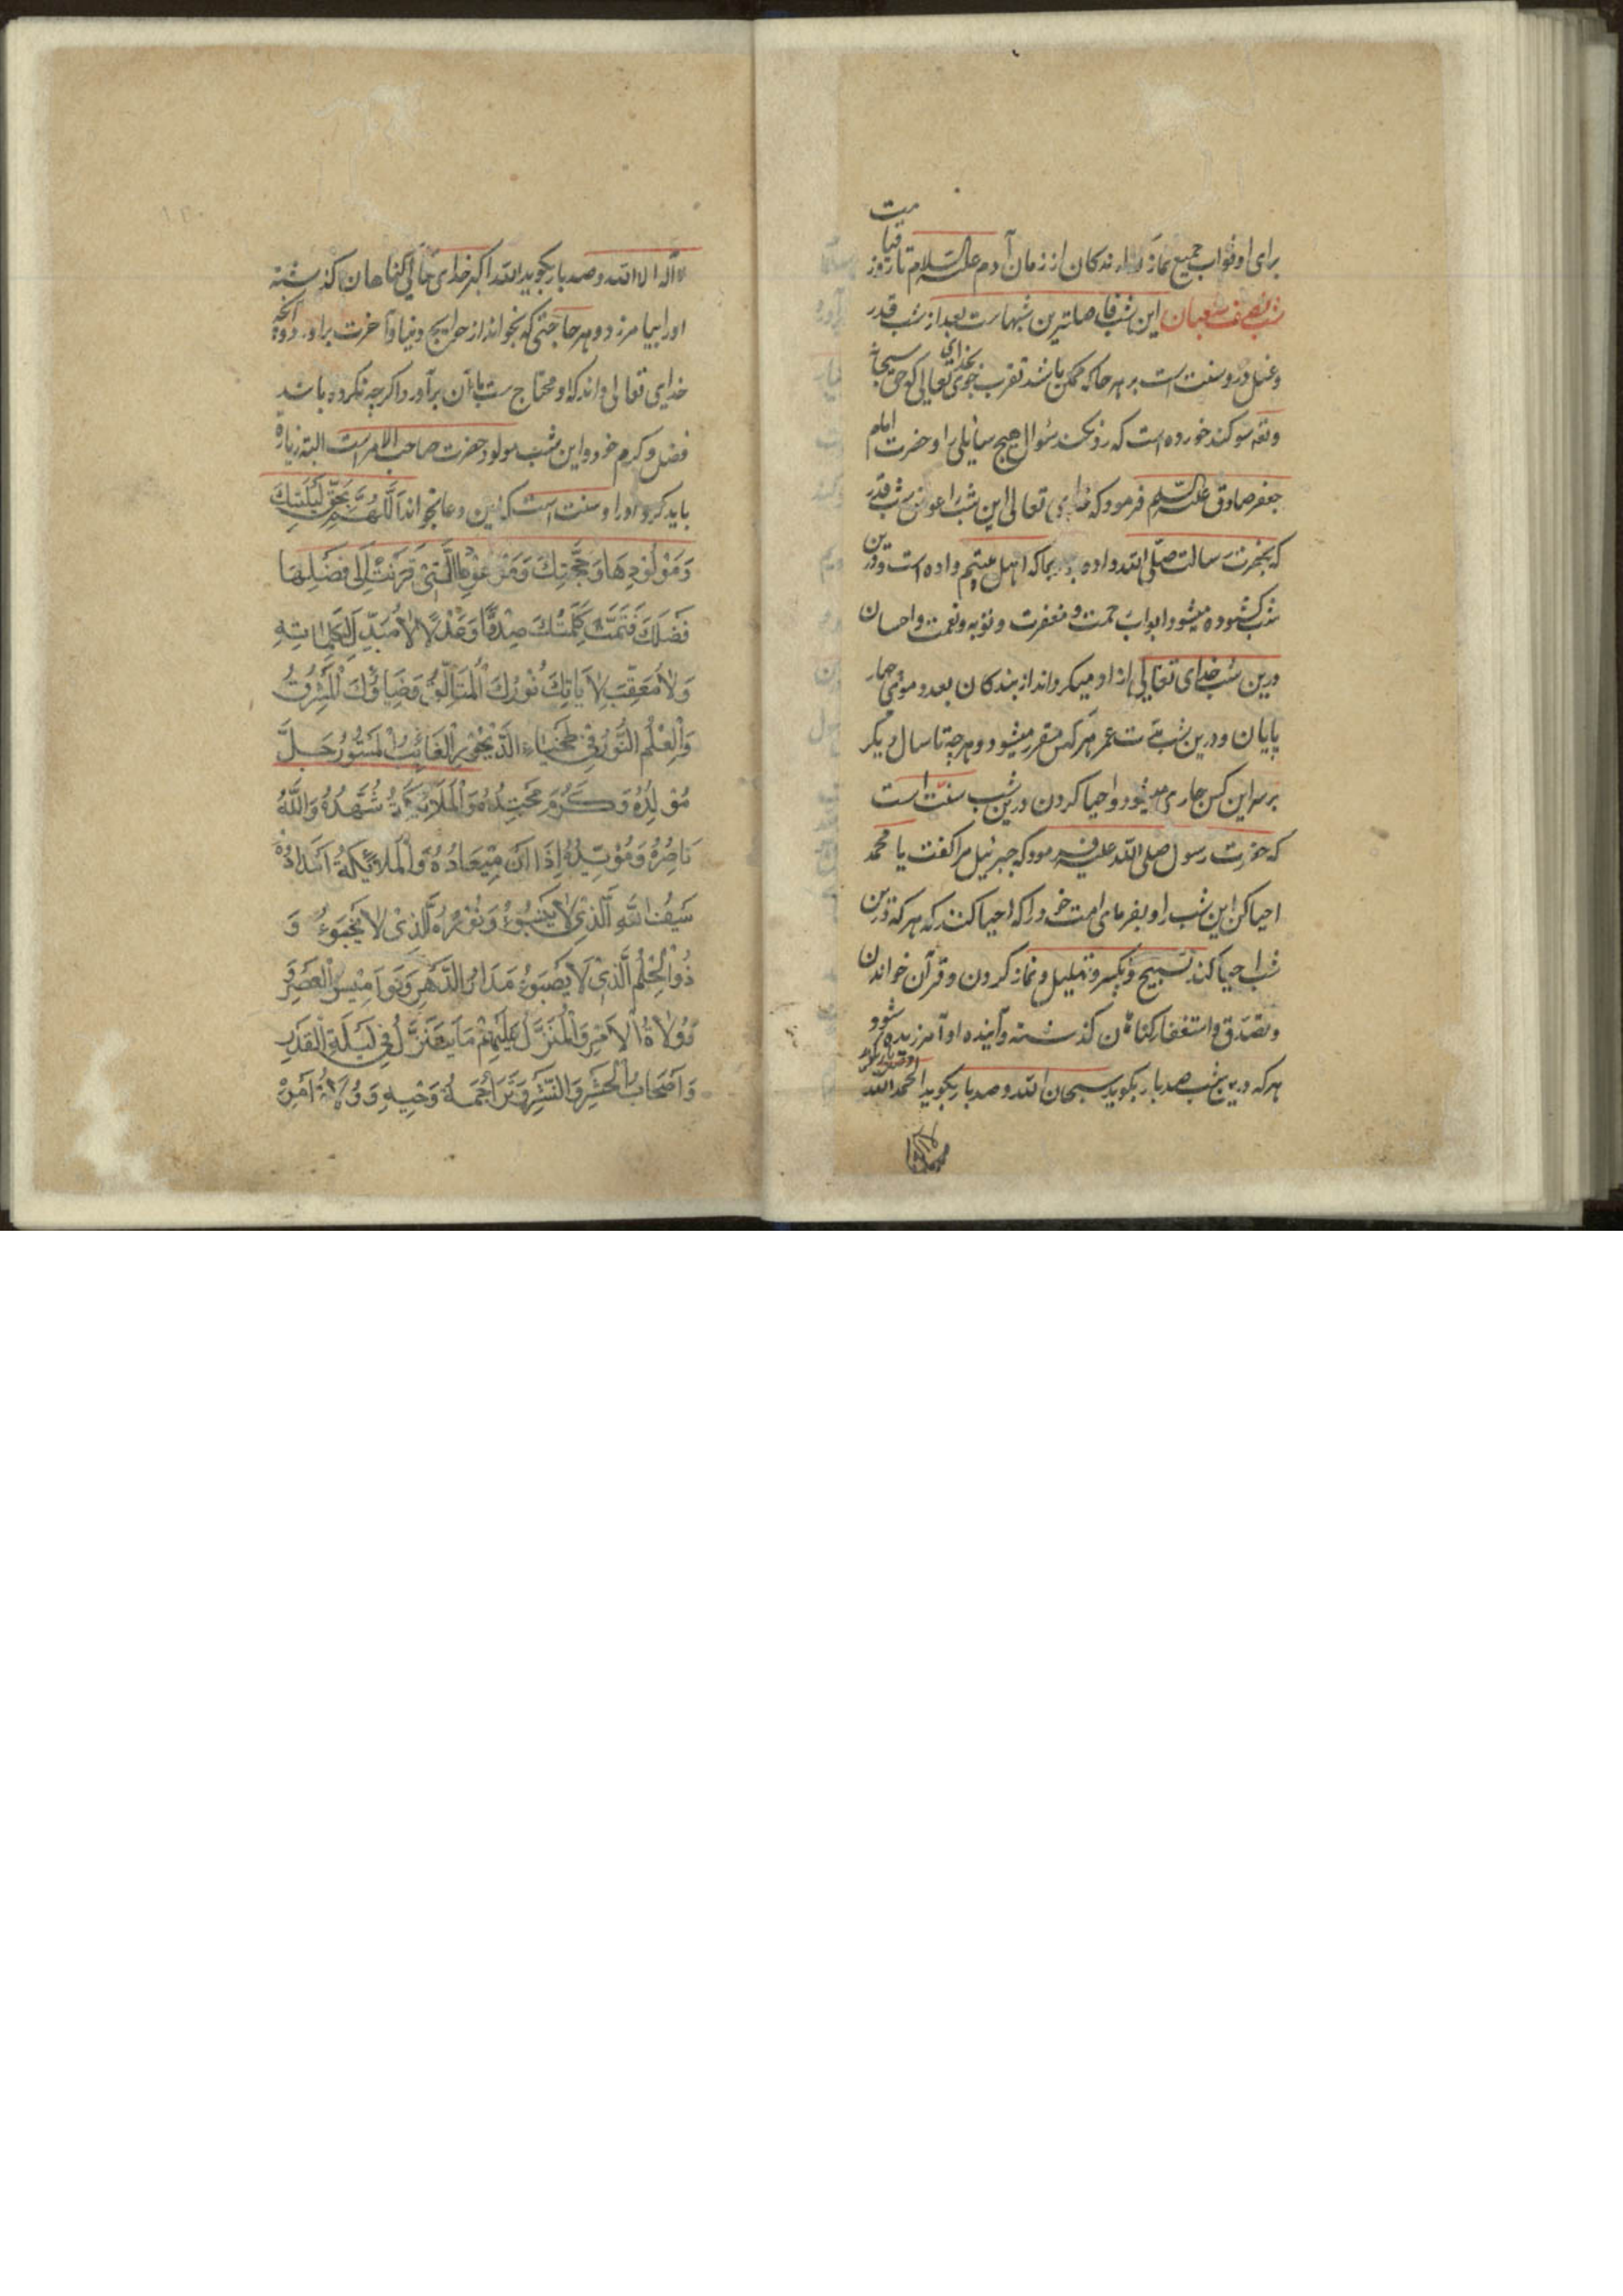 برای او ثواب جمیع نماز گذارندکان از زمان آدم علیه السلام تا روز قیامت
شب نصف شعبان این شب فاضلترین شبهاست بعد از شب قدر
و غسل درو سنت است بر هر جا که ممکن باشد تقرب جوی بخدای تعالی که حق سبحانه
سوکند خورده است که رد نکند سؤال هیچ سایلی را و حضرت امام
جعفر صادق علیه السلام فرمود که خدای تعالی این شب را عوض شب قدر
که بحضرت رسالت صلی الله داده بما که اهل بیتیم داده است و درین
شب کشوده میشود ابواب رحمت و مغفرت و توبه و نعمت و احسان
درین شب خدای تعالی ازاد میکرداند از بندکان بعدد موی چهار
پایان و درین شب مدت عمر هر کس مقرر میشود و هرچه تا سال دیکر
بر سر این کس جاری میشود و احیا کردن درین شب سنت است
که حضرت رسول صلی الله علیه فرمود که جبرئیل مرا کفت یا محمد
احیا کن این شب را و بفرمای امت خود را که احیا کنند که هر که درین
شب احیا کند بتسبیح و تکبیر و تهلیل و نماز کردن و قرآن خواندن
و تصدق و استغفار کناهان کذشته و آینده او آمرزیده شود
هر که درین شب صد بار بکوید سبحان الله و صد بار بکوید الحمد لله
لا اله الا الله و صد بار بکوید الله اکبر خدای تعالی کناهان کذشته
او را بیامرزد و هر حاجتی که بخواند از حوایج دنیا و آخرت براورده آنچه
خدای تعالی داند که او محتاج است بآن برآورد اکرچه نکرده باشد
فضل و کرم خود و این شب مولود حضرت صاحب الامر است البته زیاره
باید کرد او را و سنت است که این دعا بخواند اَللّهُمَّ بِحَقِّ لَیْلَتِكَ
وَمَوْلُودِهَا وَحُجَّتِكَ وَمَوْعُودِهَا الَّتِیْ قَرَنْتَ اِلٰی فَضْلِهَا
فَضْلَكَ فَتَمَّتْ كَلِمَتُكَ صِدْقًا وَعَدْلًا لَا مُبَدِّلَ لِكَلِمَاتِهِ
وَلَا مُعَقِّبَ لِاٰیَاتِكَ نُوْرُكَ الْمُتَأَلِّقُ وَضِیَاؤُكَ الْمُشْرِقُ
وَالْعِلْمُ النُّوْرُ فِیْ طَخْیَاءِ الدَّیْجُوْرِ الْغَائِبُ الْمَسْتُورُ جَلَّ
مَوْلِدُهُ وَكَرُمَ مَحْتِدُهُ وَالْمَلَائِكَةُ شُهَّدُهُ وَاللّٰهُ
نَاصِرُهُ وَمُؤَیِّدُهُ اِذَا اٰنَ مِیْعَادُهُ وَالْمَلَائِكَةُ اَمْدَادُهُ
سَیْفُ اللّٰهِ الَّذِیْ لَا یَنْبُوْ وَنُوْرُهُ الَّذِیْ لَا یَخْبُوْ وَ
ذُو الْحِلْمِ الَّذِیْ لَا یَصْبُوْ مَدَارُ الدَّهْرِ وَنَوَامِیْسُ الْعَصْرِ وَ
وُلَاةُ الْاَمْرِ وَالْمُنَزَّلُ عَلَیْهِمْ مَا یَتَنَزَّلُ فِیْ لَیْلَةِ الْقَدْرِ
وَاَصْحَابُ الْحَشْرِ وَالنَّشْرِ وَتَرَاجِمَةُ وَحْیِهِ وَوُلَاةُ اَمْرِهِ